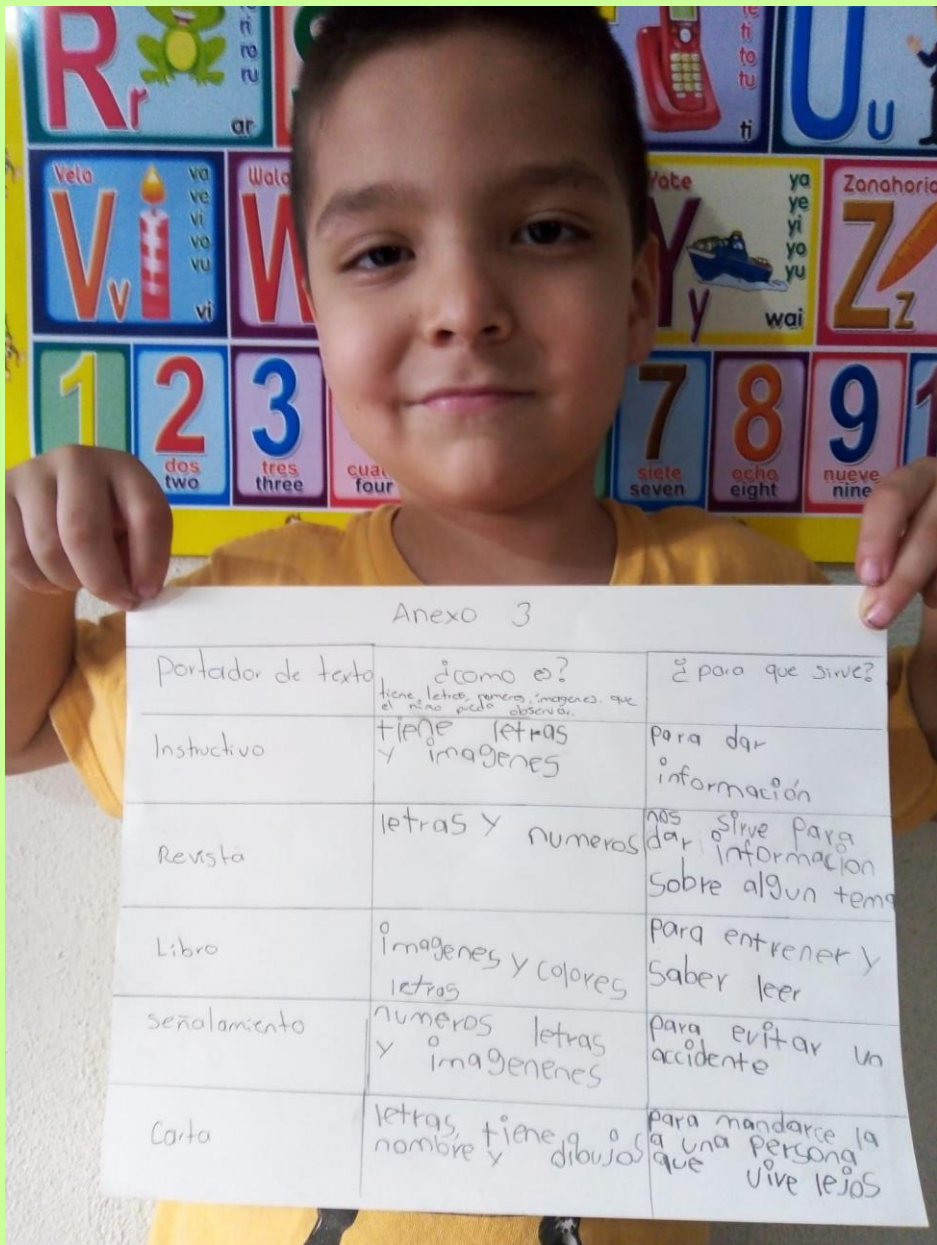 R r
ri
ro
ru
ar
ti
to
tu
ti
U u
Vela
V v
va
ve
vi
vo
vu
vi
W
Yate
Y y
ya
ye
yi
yo
yu
wai
Zanahoria
Z z
1
2
dos
two
3
tres
three
four
7
siete
seven
8
ocho
eight
9
nueve
nine
Anexo 3
Portador de texto
¿como es?
tiene, letras, imagenes, que
el niño puede observar.
¿para que sirve?
Instructivo
tiene letras
y imagenes
para dar
información
Revista
letras y numeros
nos sirve para
dar informacion
sobre algun tema
Libro
imagenes y colores
letras
para entrener y
saber leer
señalamiento
numeros letras
y imagenenes
para evitar un
accidente
Carta
letras, tiene
nombre y dibujos
para mandarce la
a una persona
que vive lejos